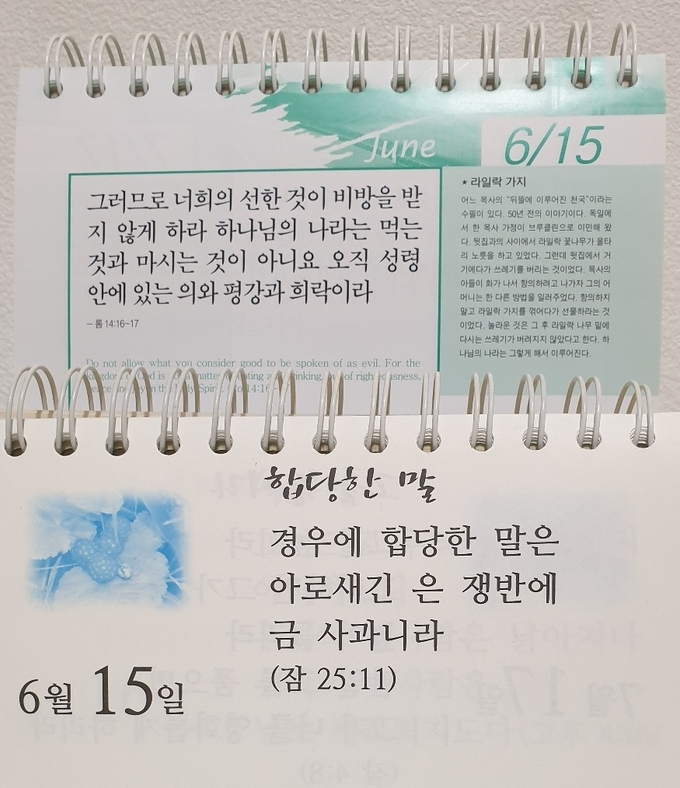 June
6/15
그러므로 너희의 선한 것이 비방을 받
지 않게 하라 하나님의 나라는 먹는
것과 마시는 것이 아니요 오직 성령
안에 있는 의와 평강과 희락이라
– 롬 14:16~17
Do not allow what you consider good to be spoken of as evil. For the
* 라일락 가지
어느 목사의 "뒤뜰에 이루어진 천국"이라는
수필이 있다. 50년 전의 이야기이다. 독일에
서 한 목사 가정이 브루클린으로 이민해 왔
다. 뒷집과의 사이에서 라일락 꽃나무가 울타
리 노릇을 하고 있었다. 그런데 뒷집에서 거
기에다가 쓰레기를 버리는 것이었다. 목사의
아들이 화가 나서 항의하려고 나가자 그의 어
머니는 한 다른 방법을 일러주었다. 항의하지
말고 라일락 가지를 꺾어다가 선물하라는 것
이었다. 놀라운 것은 그 후 라일락 나무 밑에
다시는 쓰레기가 버려지지 않았다고 한다. 하
나님의 나라는 그렇게 해서 이루어진다.
합당한 말
경우에 합당한 말은
아로새긴 은 쟁반에
금 사과니라
(잠 25:11)
6월 15일